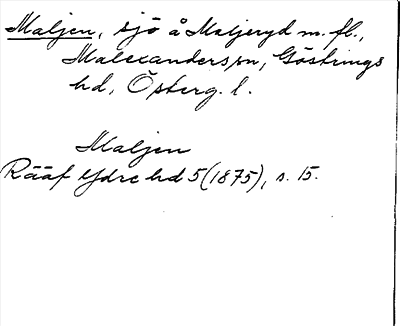 Maljen, sjö å Maljeryd m. fl.,
Malexanders sn, Göstrings
hd, Österg. l.
Maljen
Rääf Ydre hd 5 (1875), s. 15.